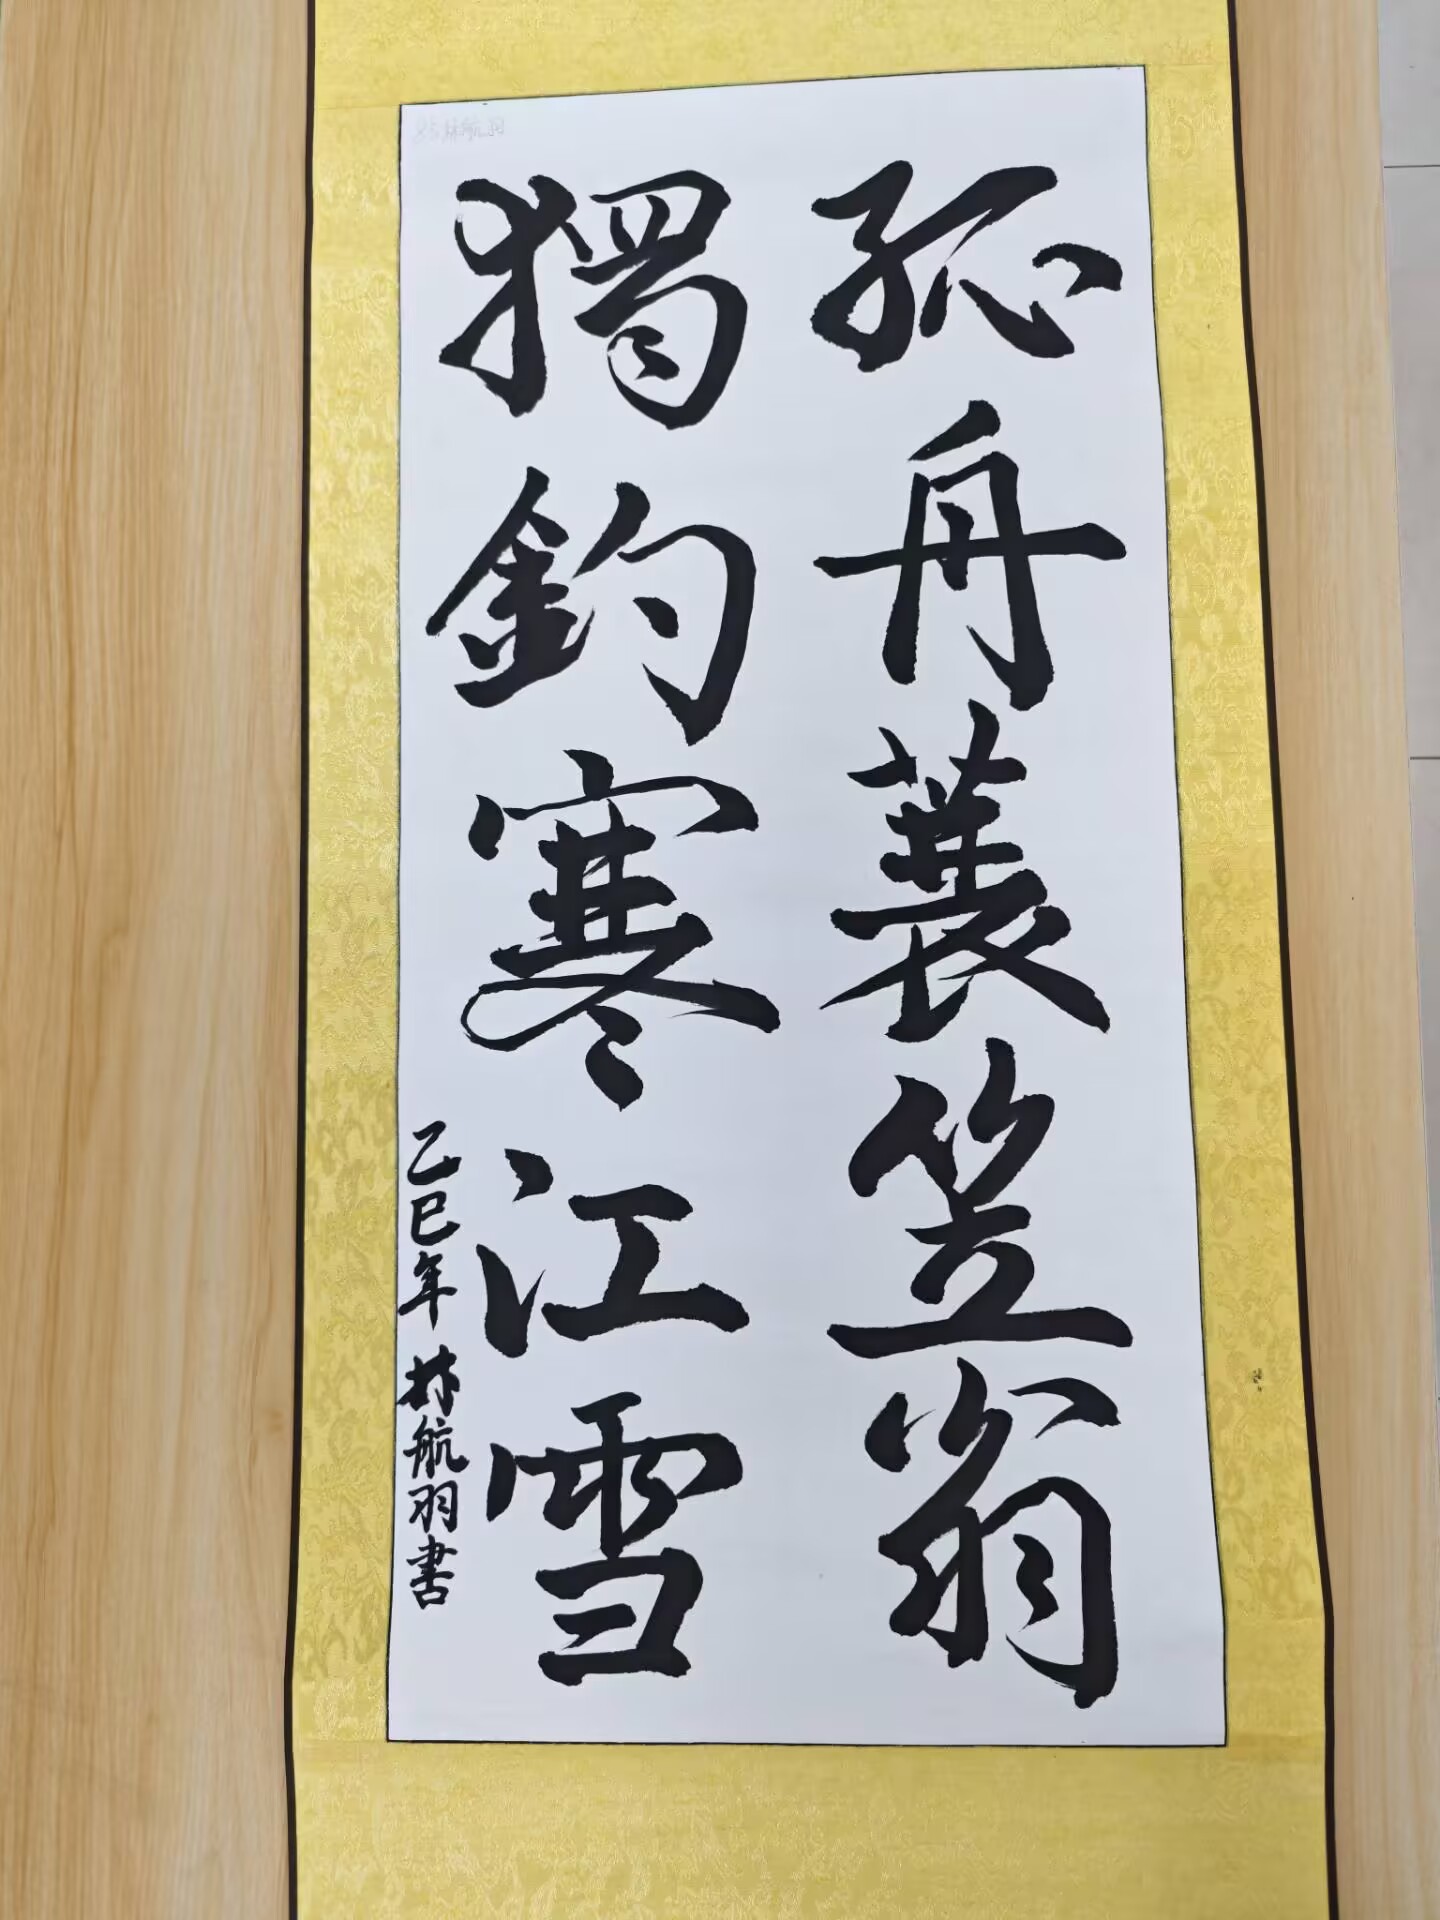 孤舟蓑笠翁
獨釣寒江雪
乙巳年 林航羽書
林航羽